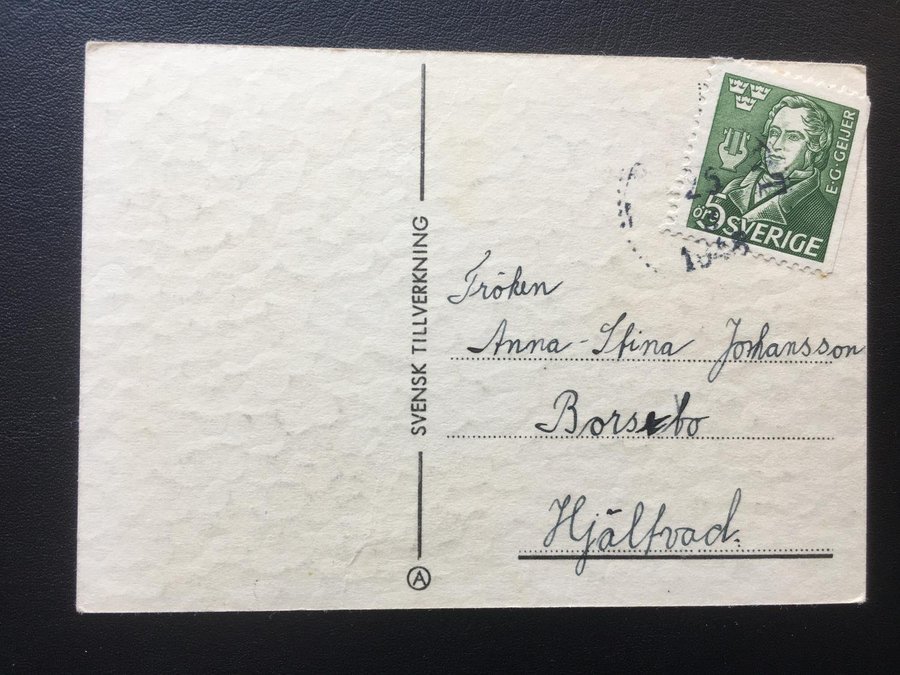 E·G·GEIJER
5 öre
SVERIGE
SVENSK TILLVERKNING
A
Fröken
Anna-Stina Johansson
Hjälfvad.